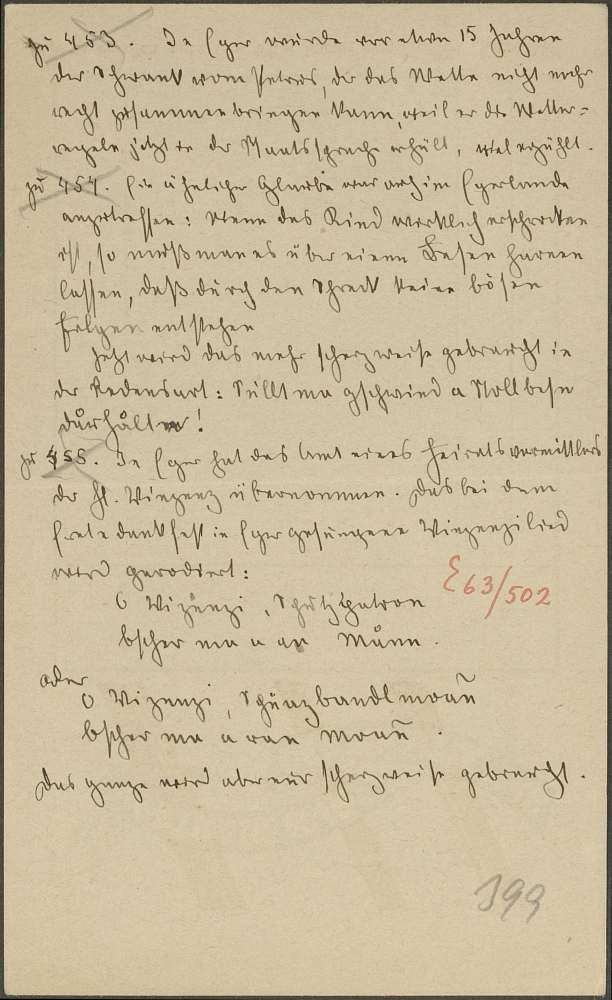 zu 453. In Eger wurde vor etwa 15 Jahren
der Schwank vom Petrus, der das Wetter nicht mehr
recht zusammenbringen kann, weil er die Wetter-
regeln jetzt in der Staatssprache erhält, viel erzählt.
zu 454. Ein ähnlicher Glaube war auch im Egerlande
anzutreffen: Wenn das Kind wirklich erschrocken
ist, so muß man es über einen Besen harnen
lassen, daß durch den Schreck keine bösen
Folgen entstehen
Jetzt wird das mehr scherzweise gebraucht in
der Redensart: Süllt ma gschwind a Stollbesn
dürhåltn!
zu 455. In Eger hat das Amt eines Heiratsvermittlers
der Hl. Vinzenz übernommen. Das bei dem
Erntedankfest in Eger gesungene Vinzenzilied
wird parodiert:
O Vizenzi, Schutzpatron
bscher ma u an Månn.
oder
O Vizenzi, Schürzbandlmoañ
bscher ma a ran Moañ.
Das ganze wird aber nur scherzweise gebraucht.
E63/502
399